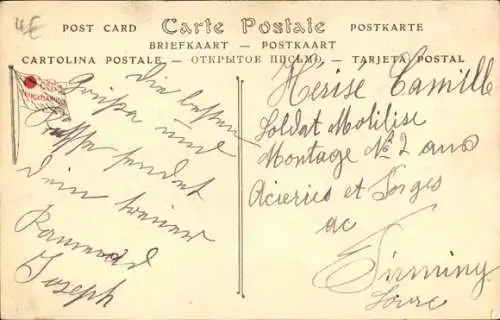 POST CARD Carte Postale POSTKARTE
BRIEFKAART — POSTKAART
CARTOLINA POSTALE — ОТКРЫТОЕ ПИСЬМО — TARJETA POSTAL
4€
Die besten
Grüße und
Küsse sendet
dein treuer
Kamerad
Joseph
Hérisé Camille
Soldat Mobilisé
Montage № 2 aux
Acieries et Forges
ac
Firminy
Loire